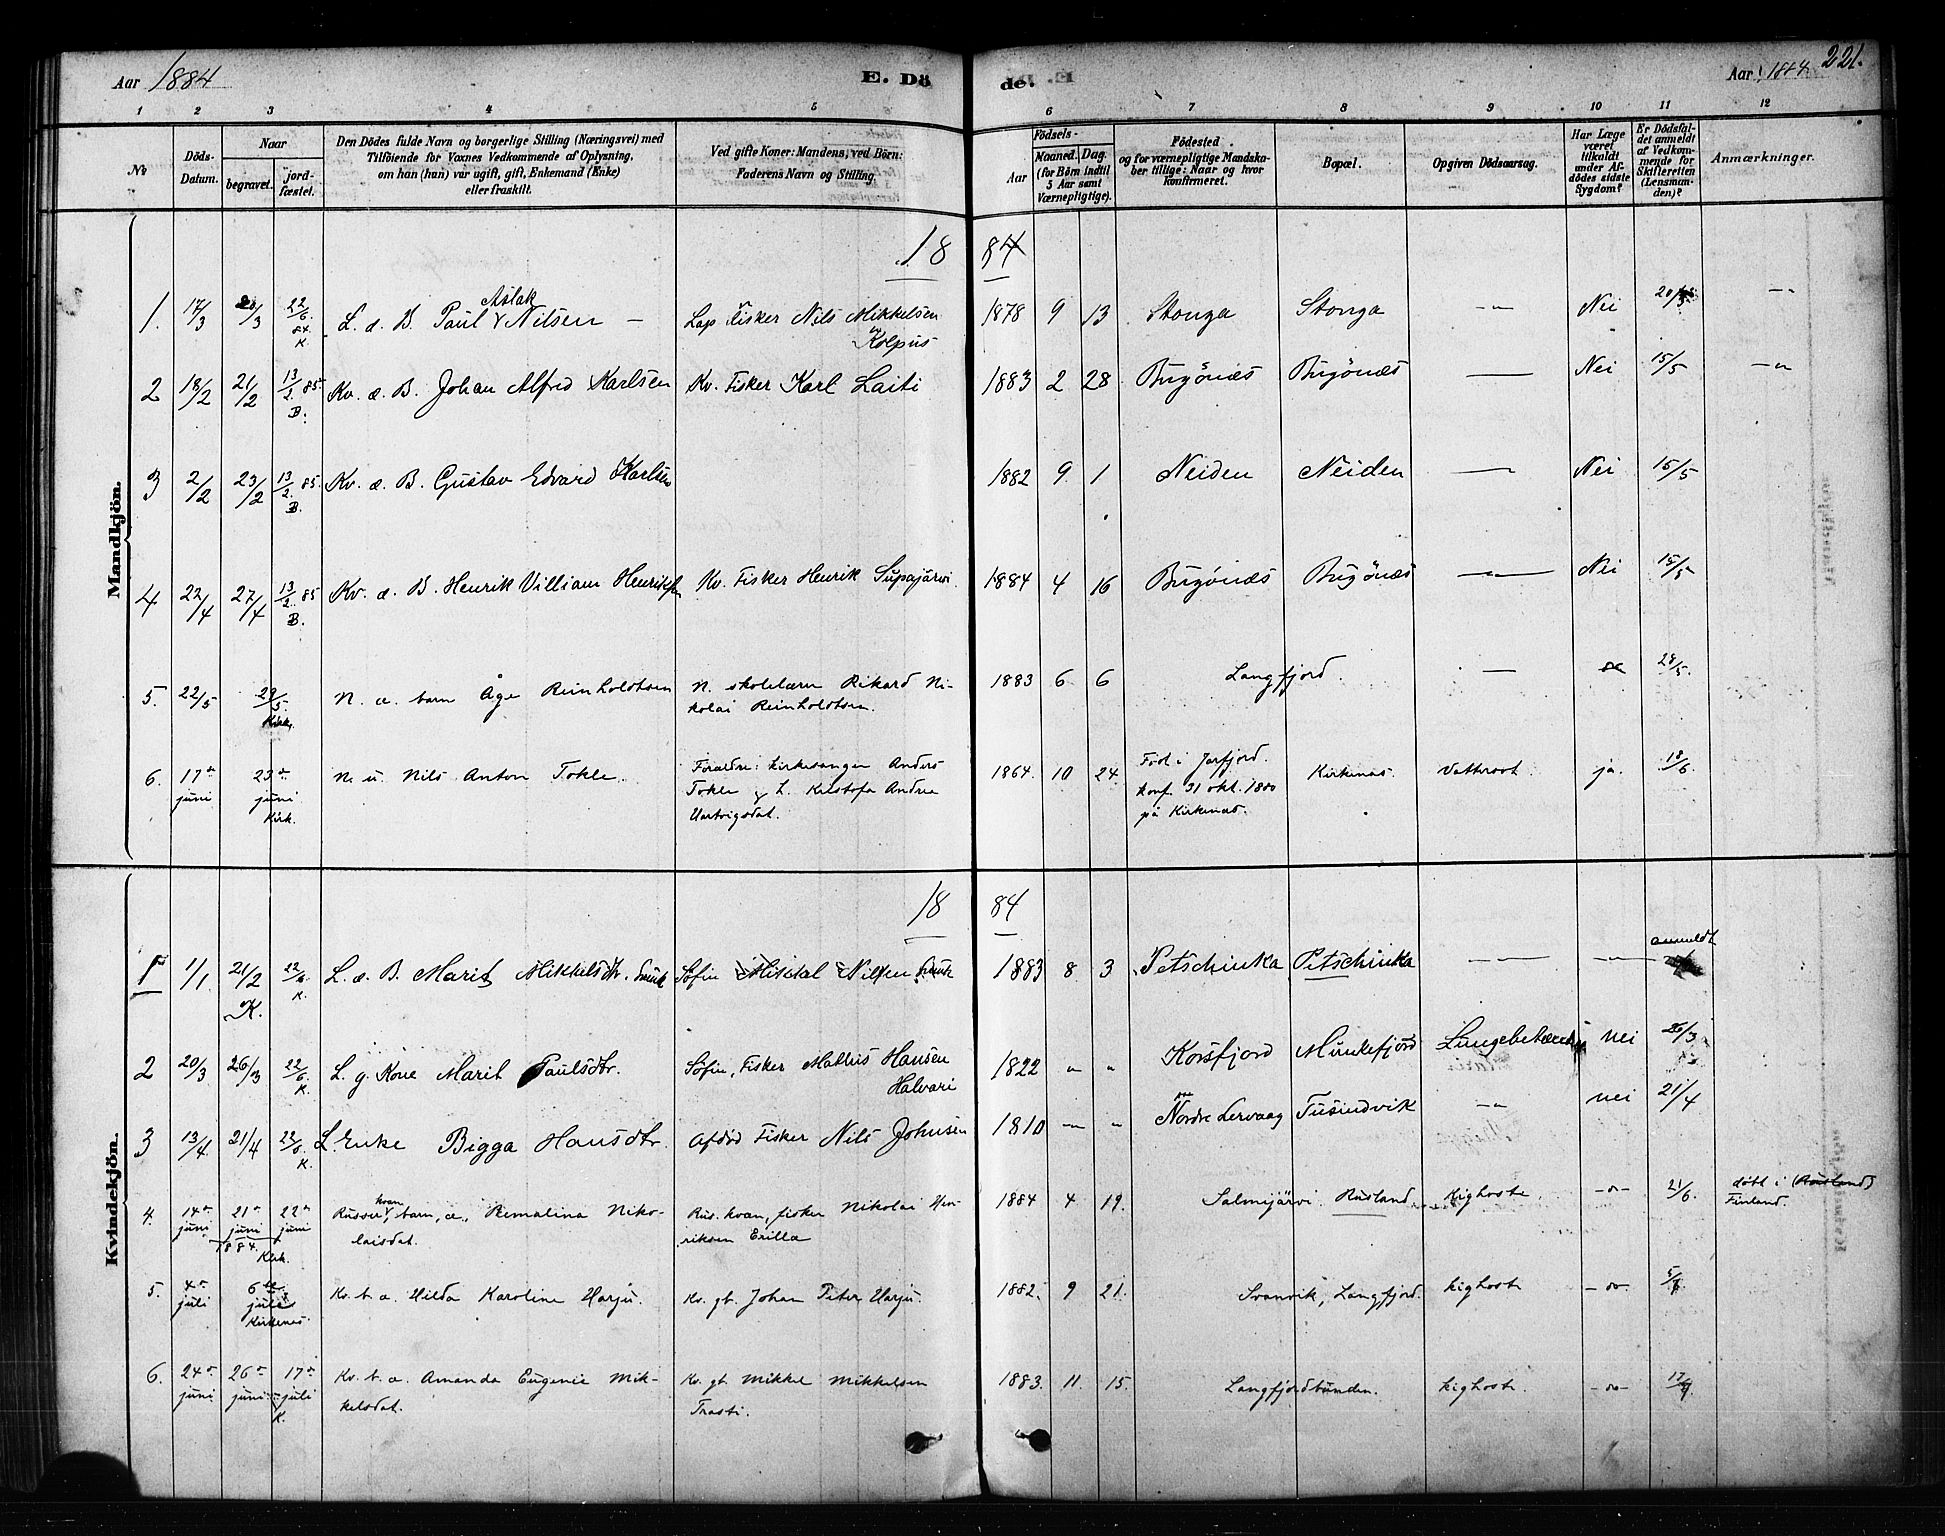 Aar 1884
E. Dö
de.
Aar 1884
221.
1 2 3 4 5 6 7 8 9 10 11 12
No
Döds-Datum.
Naar
begravet.
jord-fæstet.
Den Dödes fulde Navn og borgerlige Stilling (Næringsvei) med
Tilföiende for Voxnes Vedkommende af Oplysning,
om han (hun) var ugift, gift, Enkemand (Enke)
eller fraskilt.
Ved gifte Koner: Mandens, ved Börn:
Faderens Navn og Stilling.
Födsels-
Aar
Maaned. Dag.
(for Börn indtil
5 Aar samt
Værnepligtige).
Födested
og for værnepligtige Mandska-
ber tillige: Naar og hvor
konfirmeret.
Bopæl.
Opgiven Dödsaarsag.
Har Læge
været
tilkaldt
under Af-
dödes sidste
Sygdom?
Er Dödsfal-
det anmeldt
af Vedkom-
mende for
Skifteretten
(Lensman-
den)?
Anmærkninger.
Mandkjön.
18 84
1. 17/3 20/3 22/6 84 K. L. æ. B. Paul Aslak Nilsen — Lap Fisker Nils Mikkelsen Kolpus 1878 9 13 Stonga Stonga —„— Nei 20/5 —„
2 18/2 21/2 13/2 85 B. Kv. æ. B. Johan Alfred Karlsen Kv. Fisker Karl Laiti 1883 2 28 Bugönæs Bugönæs —„— Nei 15/5 —„
3 2/2 23/2 13/2 85. B. Kv. æ. B. Gustav Edvard Karlsen 1882 9. 1 Neiden Neiden —„— Nei 15/5
4 22/4 27/4 13/2 85 B. Kv. æ. B. Henrik Villiam Henriksen Kv. Fisker Henrik Supajärvi. 1884 4 16 Bugönæs Bugönæs —„— Nei 15/5
5. 22/5 29/5. Kirk. N. æ. barn Åge Reinholdtsen N. skolelærer Rikard Ni-
kolai Reinholdtsen. 1883 6 6 Langfjord. — 28/5.
6. 17de juni 23de juni Kirk. N. u. Nils Anton Tokle. Foraldre: kirkesanger Anders
Tokle & L. Kristofa Andrea
Hartvigsdat. 1864. 10 24. Föd i Jarfjord.
konf. 31 okt. 1880
på Kirkenæs. Kirkenæs. Vattersot. ja. 18/6.
Kvindekjön.
18 84
1 1/1. 21/2 K. 22/6 K. L. æ. B. Marit Mikkelsdtr. Smuk Söfin Mikkal Nilsen Smuk 1883 8 3 Petschinka Petschinka —„— —„— anmeldt
2 20/3 26/3 22/6. K. L. g. Kone Marit Paulsdtr. Söfin, Fisker Mathis Hansen
Halvari 1822 „ „ Korsfjord Munkefjord Lungebetænd. nei 26/3
3 13/4 21/4 22/6. K. L. Enke Bigga Hansdtr. Afdöd Fisker Nils Johnsen 1810 —„— „ Nordre Lervaag Tusindvik —„ nei 21/4
4. 14de juni 21de juni 1884. Kirk. 22de juni Russer kvæn, barn, æ., Remalina Niko-
laisdat. Rus. kvæn, fisker Nikolai Hen-
riksen Erilla 1884 4 19. Salmijärvi. Rusland. kighoste. —„— 21/6. döbt i (Rusland)
Finland.
5. 4de juli 6te juli Kirkenes. Kv. b. æ. Hilda Karoline Harju. Kv. gb. Johan Peter Harju. 1882. 9 21. Svanvik, Langfjord. kighoste —„— 5/7.
6. 24de juni 26de juni 17de juli K. Kv. b. æ. Amanda Eugenie Mik-
kelsdat. Kv. gb. Mikkel Mikkelsen
Trasti. 1883. 11. 15. Langfjordbunden. kighoste. —„— 17/7